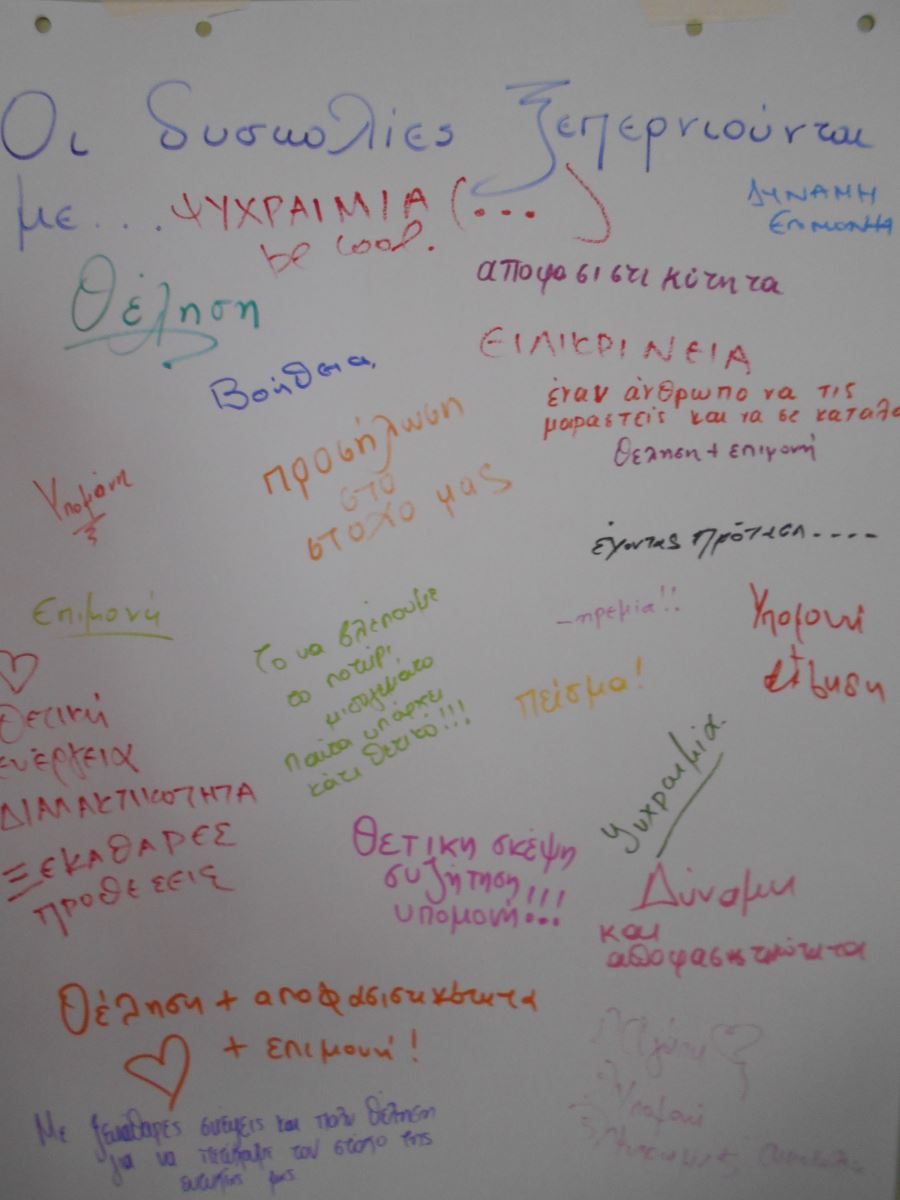 Οι δυσκολίες ξεπερνιούνται
με... ΨΥΧΡΑΙΜΙΑ (...)
be cool.
ΔΥΝΑΜΗ
ΕΠΙΜΟΝΗ
Θέληση
αποφασιστικότητα
Βοήθεια
ΕΙΛΙΚΡΙΝΕΙΑ
έναν άνθρωπο να τις
μοιραστείς και να σε καταλα
Θέληση + επιμονή
προσήλωση
στο
στόχο μας
Υπομονή
έχοντας πρόταση.....
Επιμονή
Το να βλέπουμε
το ποτήρι
μισογεμάτο
πάντα υπάρχει
κάτι θετικό!!!
-ηρεμία!!
Υπομονή
+
Πείσμα!
Θετική
ενέργεια
ΔΙΑΛΛΑΚΤΙΚΟΤΗΤΑ
ΞΕΚΑΘΑΡΕΣ
ΠΡΟΘΕΣΕΙΣ
Ψυχραιμία.
Θετικη σκέψη
συζήτηση
υπομονή!!!
Δύναμη
και
αποφασηστικότητα
Θέληση + αποφασιστικότητα
+ επιμονή!
Αγάπη
Υπομονή
Με ξεκάθαρες σκέψεις και πολύ θέληση
για να πετύχουμε τον στόχο της
ευτυχίας μας